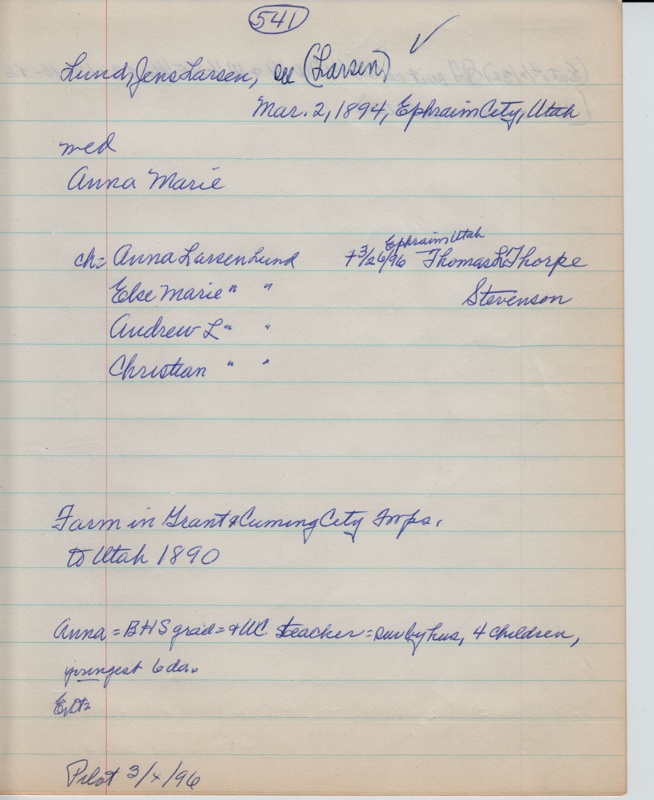 541
Lund, Jens Larsen, see (Larsen) ✓
Mar. 2, 1894, Ephraim City, Utah
med
Anna Marie
Ephraim Utah
ch= Anna Larsen Lund +3/26/96 Thomas L Thorpe
Else Marie " " Stevenson
Andrew L " "
Christian " "
Farm in Grant & Cuming City Twps.
to Utah 1890
Anna = BHS grad = & WC teacher = surv by hus, 4 children,
youngest 6 da.
Pilot 3/ /96